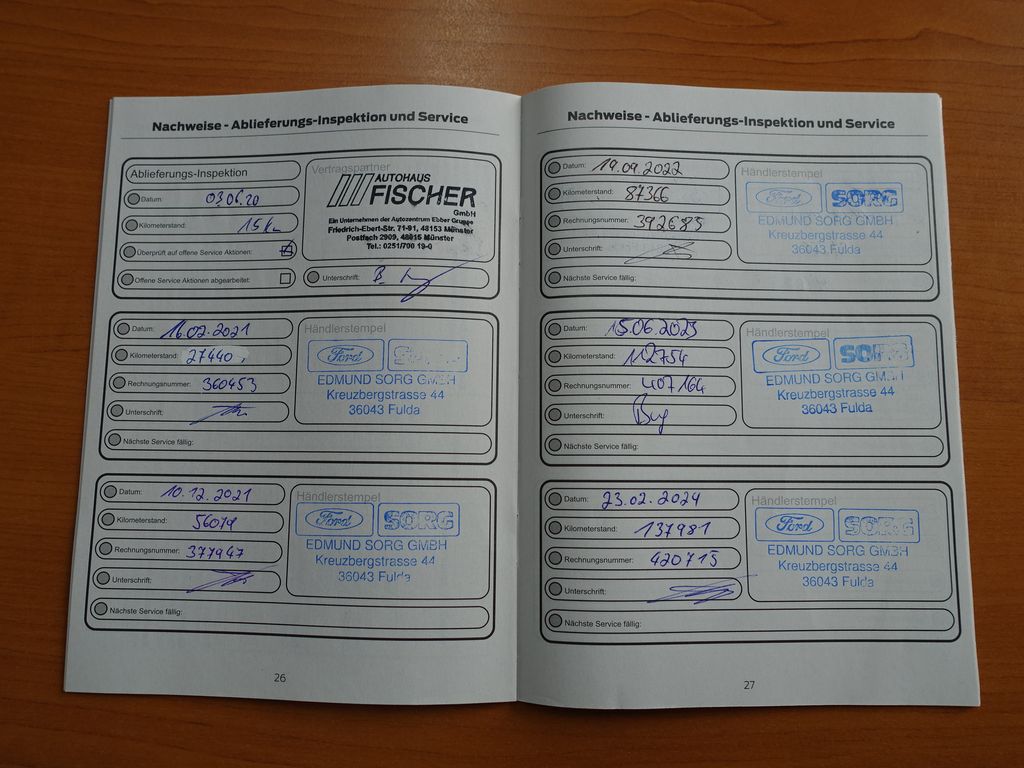 Nachweise - Ablieferungs-Inspektion und Service
Ablieferungs-Inspektion
Datum 03.06.20
Kilometerstand: 15 km
Überprüft auf offene Service Aktionen:
Offene Service Aktionen abgearbeitet:
Vertragspartner
AUTOHAUS
FISCHER
GmbH
Ein Unternehmen der Autozentrum Ebber Gruppe
Friedrich-Ebert-Str. 71-91, 48153 Münster
Postfach 2909, 48016 Münster
Tel.: 0251/700 19-0
Unterschrift:
Datum: 16.02.2021
Kilometerstand: 27440
Rechnungsnummer: 360453
Unterschrift:
Nächste Service fällig:
Händlerstempel
Ford
EDMUND SORG GMBH
Kreuzbergstrasse 44
36043 Fulda
Datum: 10.12.2021
Kilometerstand: 56079
Rechnungsnummer: 377947
Unterschrift:
Nächste Service fällig:
Händlerstempel
Ford SORG
EDMUND SORG GMBH
Kreuzbergstrasse 44
36043 Fulda
26
Nachweise - Ablieferungs-Inspektion und Service
Datum: 19.09.2022
Kilometerstand: 87366
Rechnungsnummer: 392685
Unterschrift:
Nächste Service fällig:
Händlerstempel
Ford SORG
EDMUND SORG GMBH
Kreuzbergstrasse 44
36043 Fulda
Datum: 15.06.2023
Kilometerstand: 112754
Rechnungsnummer: 407164
Unterschrift:
Nächste Service fällig:
Händlerstempel
Ford SORG
EDMUND SORG GMBH
Kreuzbergstrasse 44
36043 Fulda
Datum: 23.02.2024
Kilometerstand: 137981
Rechnungsnummer: 420715
Unterschrift:
Nächste Service fällig:
Händlerstempel
Ford SORG
EDMUND SORG GMBH
Kreuzbergstrasse 44
36043 Fulda
27